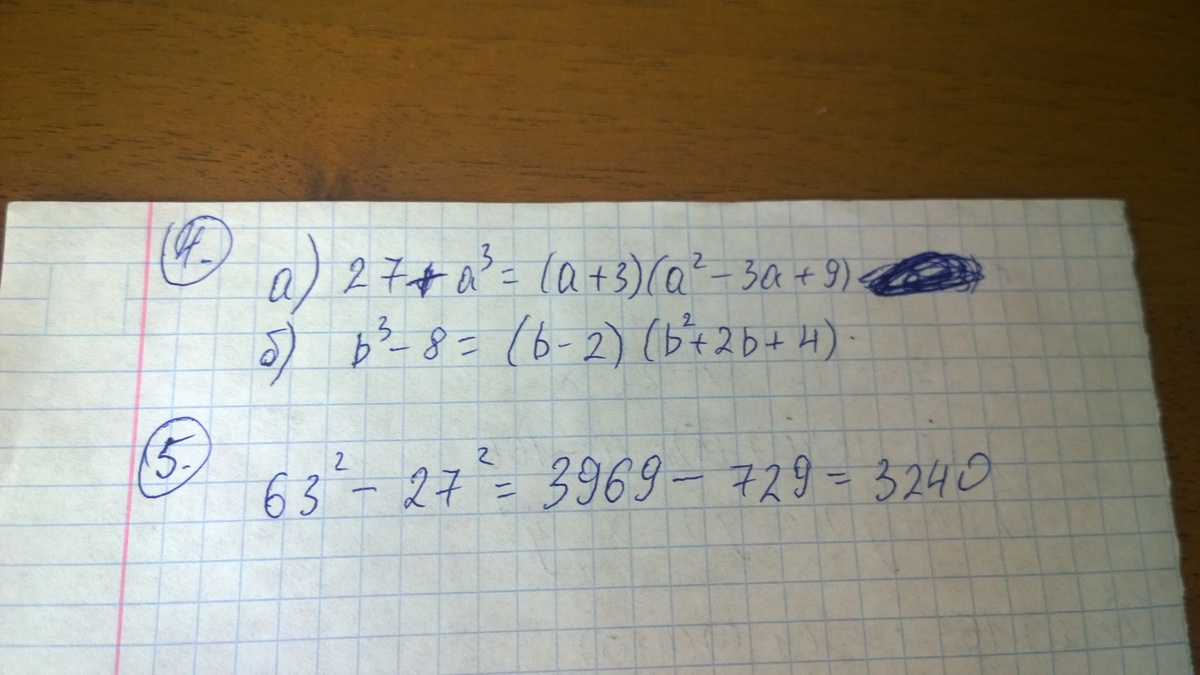 4.
а) 27 + a³ = (a + 3)(a² - 3a + 9)
б) b³ - 8 = (b - 2) (b² + 2b + 4).
5.
63² - 27² = 3969 - 729 = 3240